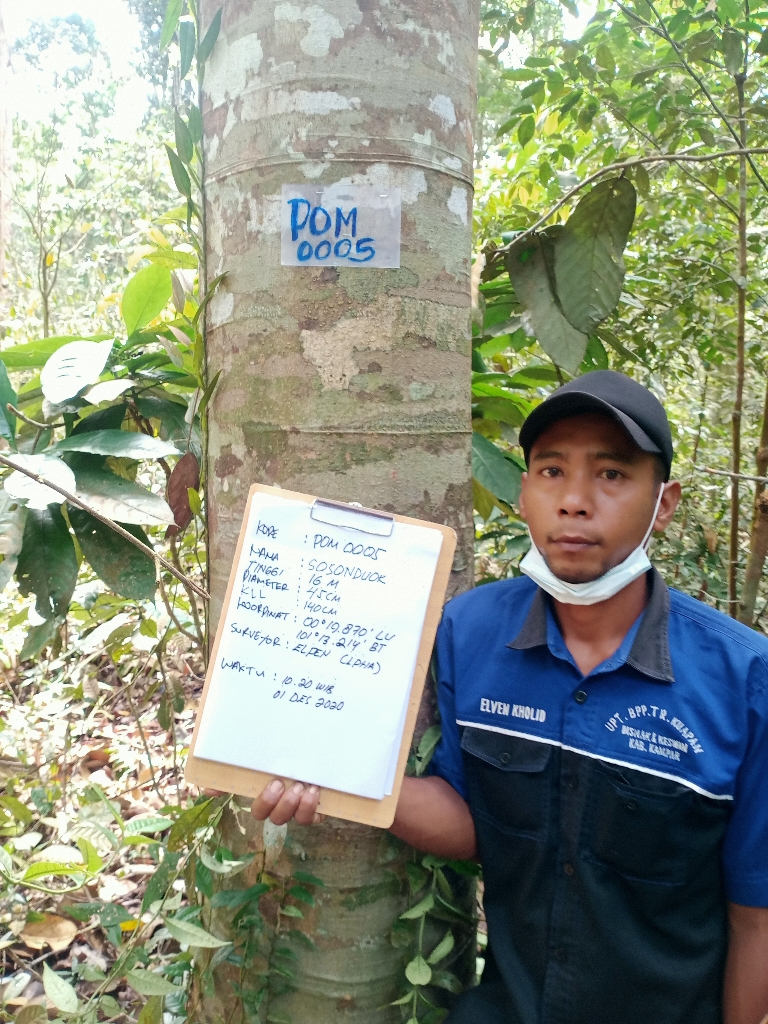 POM
0005
KODE : POM 0005
NAMA : SOSONDUOK
TINGGI : 16 M
DIAMETER : 45CM
KLL : 140CM
KOORDINAT : 00°19.870' LU
101°13.214' BT
SURVEYOR : ELPEN (LPHA)
WAKTU : 10.20 WIB
01 DES 2020
ELVEN KHOLID
UPT. BPP. TR. KUAPAN
DISNAK & KESWAN
KAB. KAMPAR